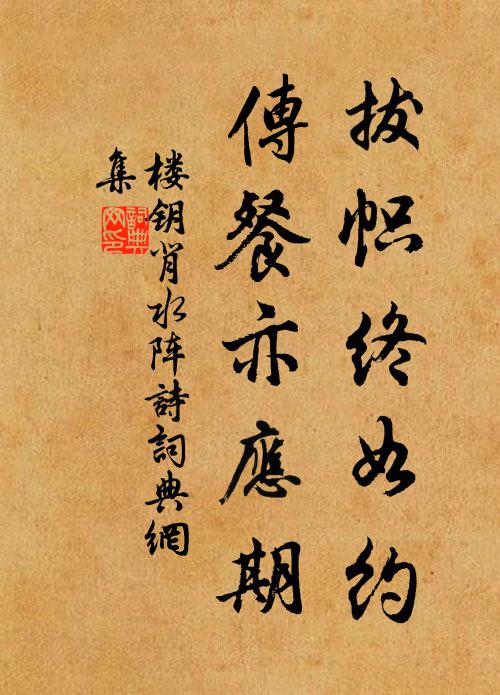 拔帜终如约
傳餐亦應期
楼钥肖水阵詩詞典網
集
詞典網印